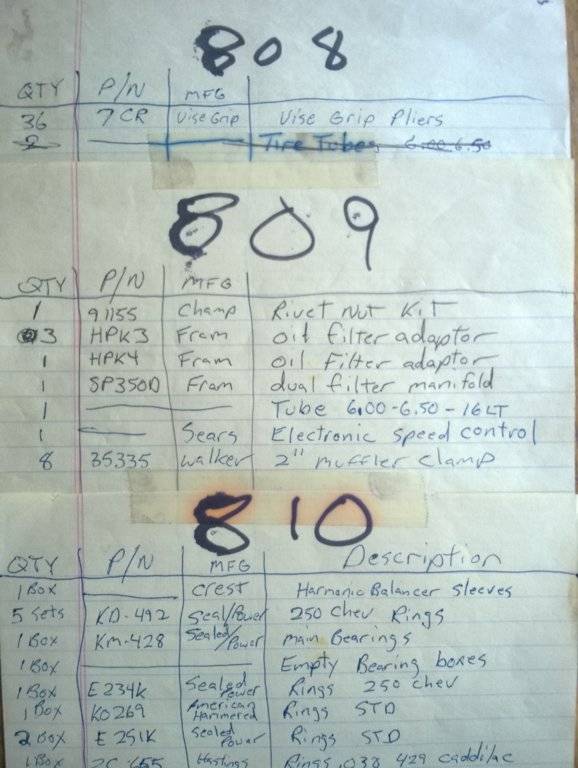 808
QTY P/N MFG
36 7CR Vise Grip Vise Grip Pliers
2 Tire Tubes 6.00 6.50
809
QTY P/N MFG
1 91155 Champ Rivet Nut Kit
3 HPK3 Fram oil filter adaptor
1 HPK4 Fram oil Filter adaptor
1 SP350D Fram dual filter manifold
1 Tube 6.00-6.50-16LT
1 Sears Electronic speed control
8 35335 walker 2" muffler clamp
810
QTY P/N MFG Description
1 Box Crest Harmonic Balancer Sleeves
5 Sets KD-492 Seal/Power 250 Chev Rings
1 Box KM-428 Sealed/Power main Bearings
1 Box Empty Bearing boxes
1 Box E234K Sealed Power Rings 250 chev
1 Box KO269 American Hammered Rings STD
2 Box E251K Sealed Power Rings STD
1 Box Hastings Rings .038 429 caddilac